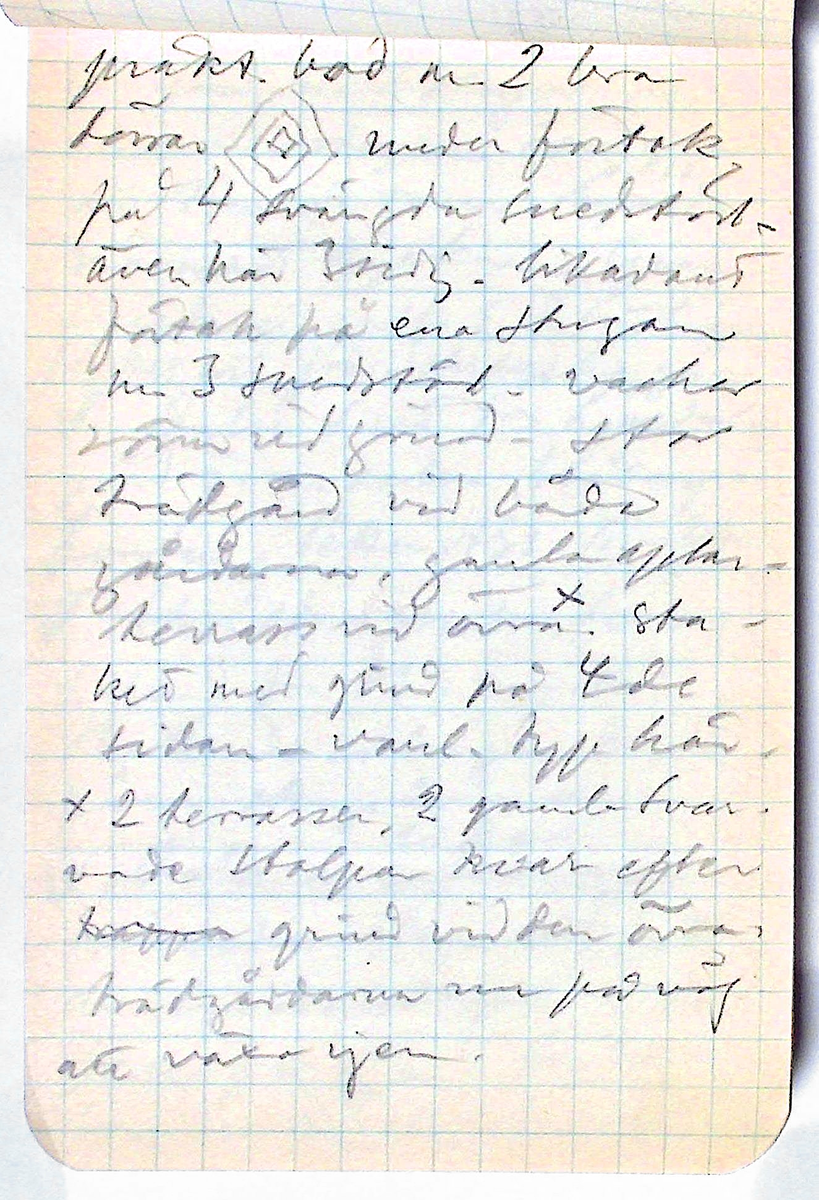 prakt. bod m 2 bra
dörrar under förtak
på 4 svängda snedstöd -
även här 3sidig - likadant
förtak på ena stugan
m 3 snedstöd - vacker
vid grind - stor
trädgård vid båda
gårdarna, gamla aplar -
terrass vid övra x. sta -
ket med grind på 4de
sidan - vanl. typ här.
x 2 terrasser, 2 gamla svar-
vade stolpar kvar efter
trappa grind vid den övra.
trädgårdarna nu på väg
att växa igen.